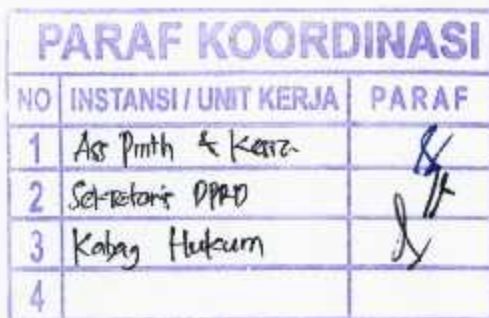 PARAF KOORDINASI
NO INSTANSI / UNIT KERJA PARAF
1 Ass Pmth & Kesra
2 Sekretaris DPRD
3 Kabag Hukum
4